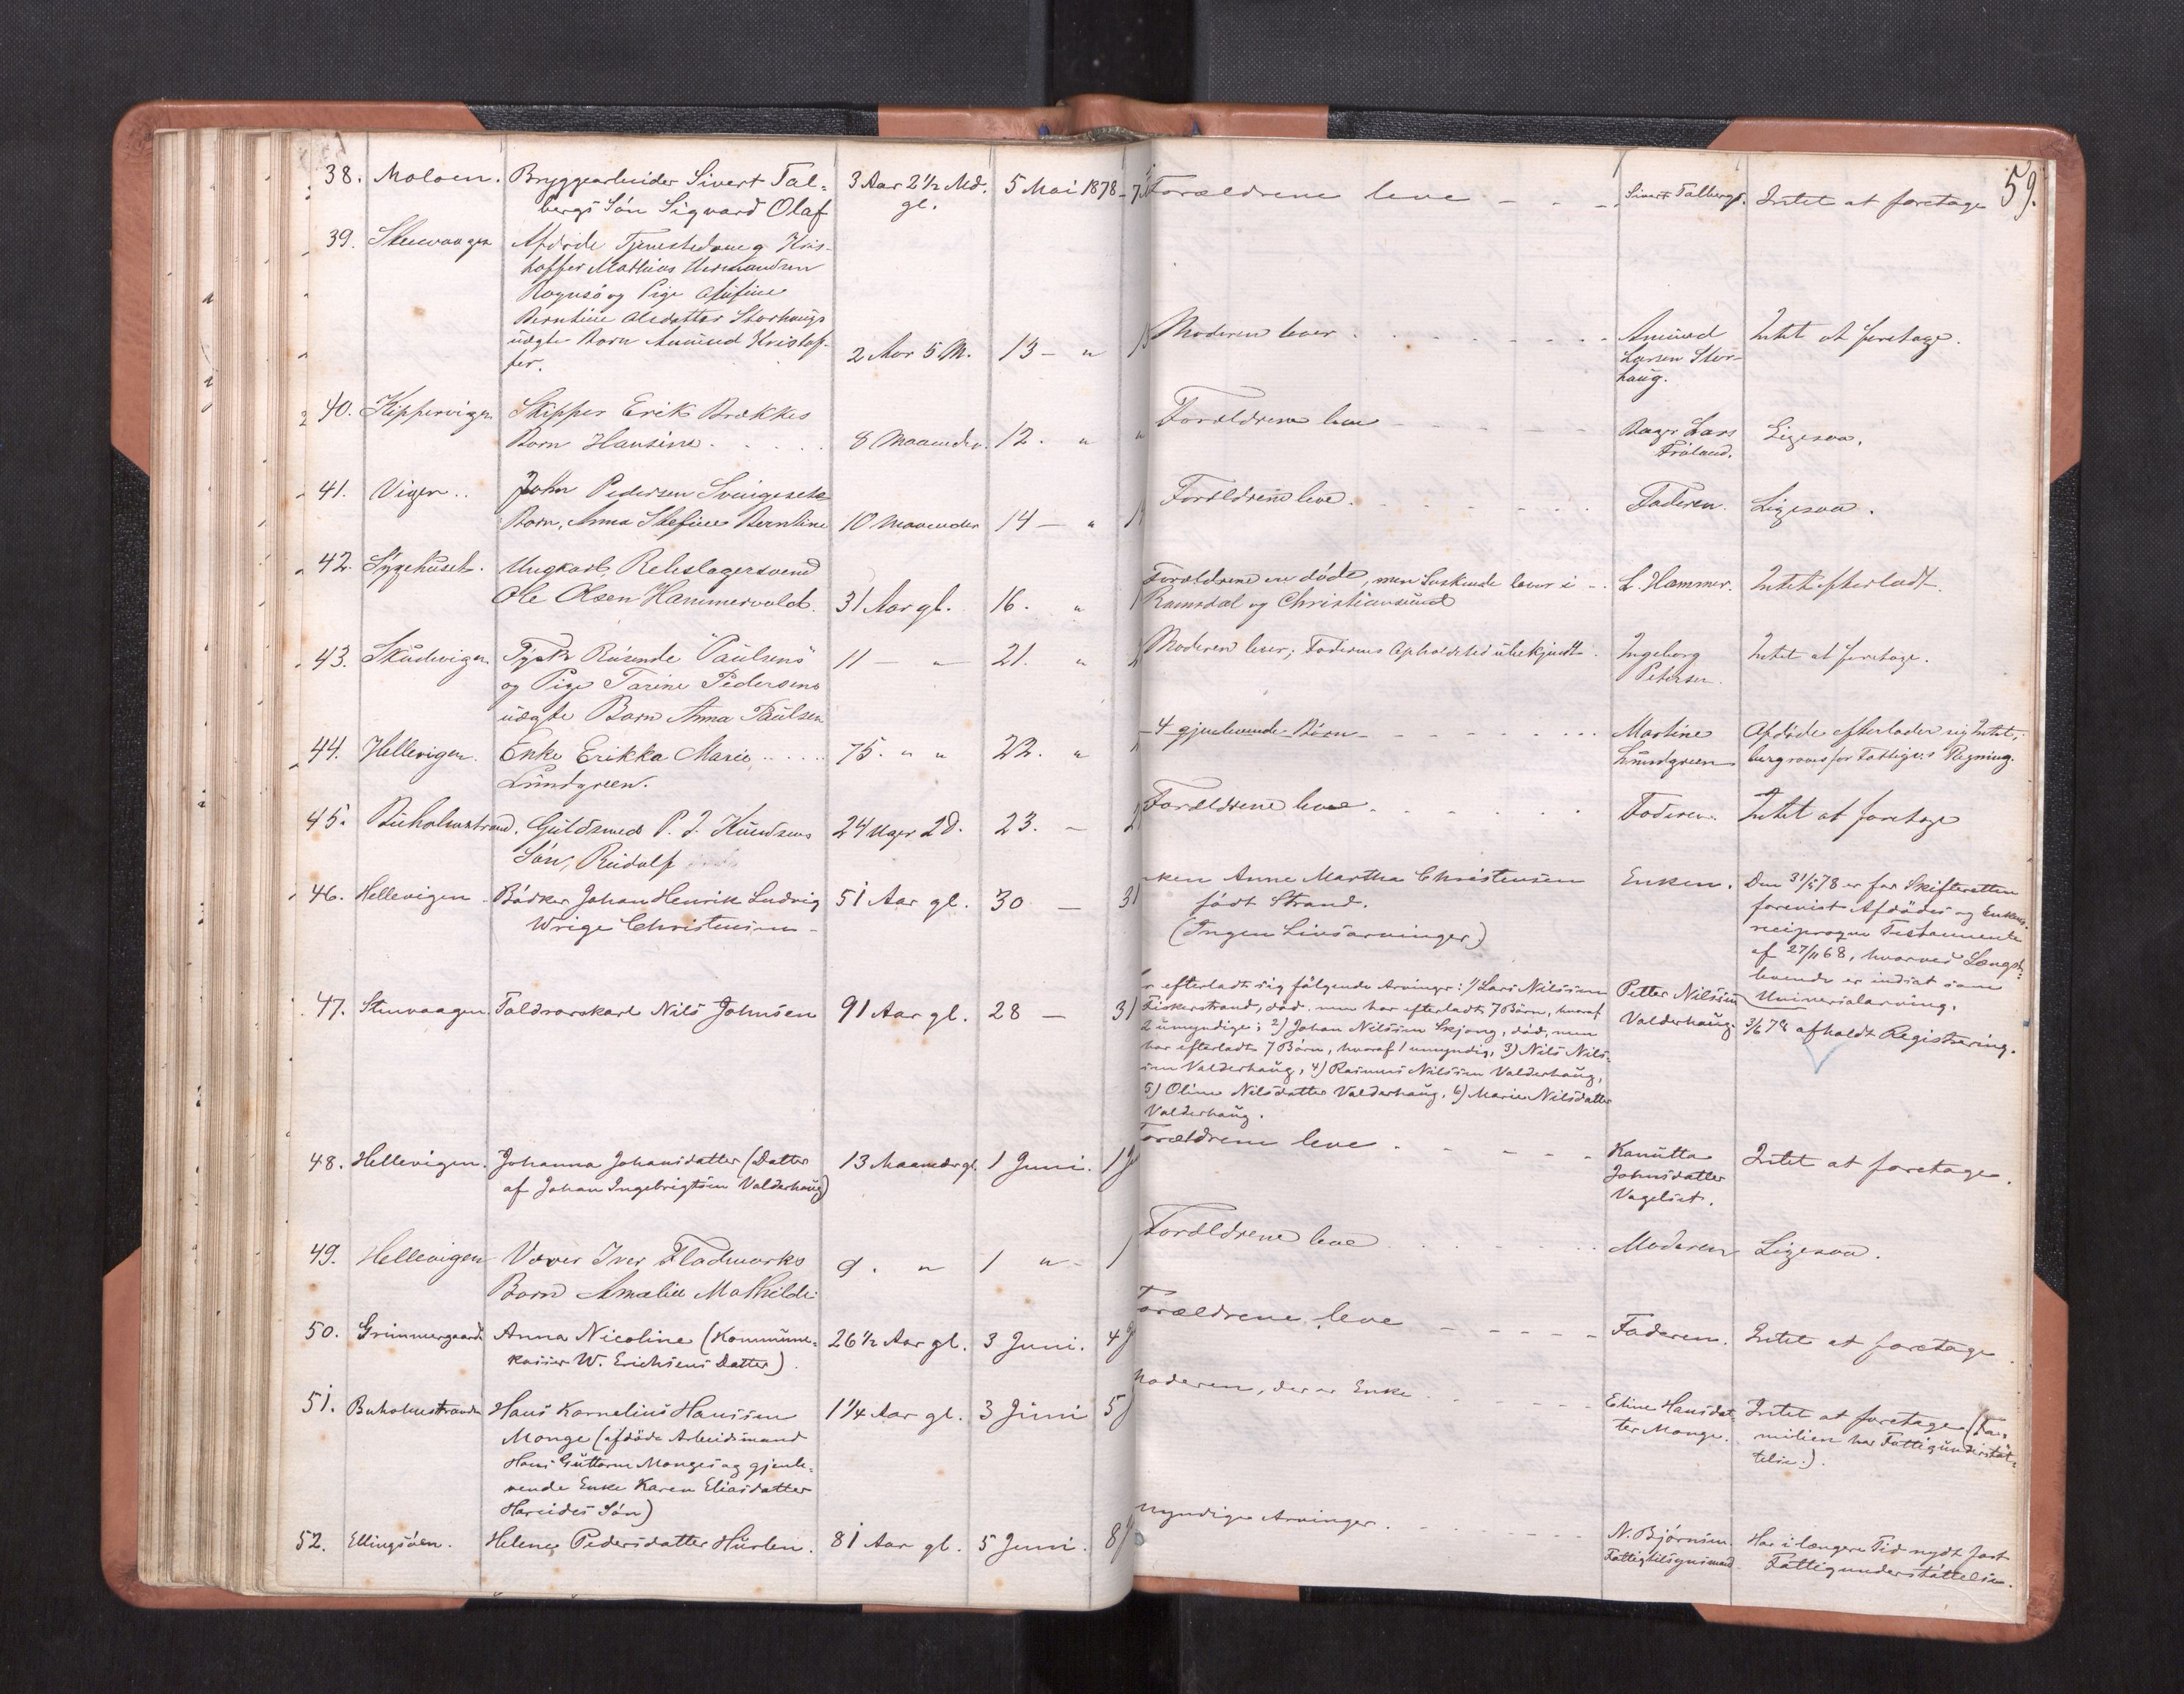 59.
38. Moloen. Bryggearbeider Sivert Tal- 3 Aar 2½ Md. 5 Mai 1878 - 7 Forældrene leve - - - Sivert Talberg. Intet at foretage
bergs Sön Sigvard Olaf gl.
39. Stenvaagen Afdöde Tjenestedreng Kris-
toffer Mathias Hermandsen
Rognsö og Pige
Berntine Olsdatter Storhaugs
uægte Barn Amund Kristof- 2 Aar 5 M. 13 - " Moderen lever. Amund Intet at foretage.
fer. Larsen Stor-
haug.
40. Kippervigen Skipper Erik Brækkes Forældrene leve
Barn Hansine. 8 Maaneder. 12. " " Bager Lars Ligesaa.
Fröland.
41. Vigen.. John Pedersen Svingesets Forældrene leve. Faderen. Ligesaa.
Barn, Anna Stefine Berntine 10 Maaneder 14 - "
42. Sygehuset. Ungkarl, Rebslagersvend Forældrene ere döde, men Söskende lever i - L. Hammer. Intet efterladt.
Ole Olsen Hammervold. 31 Aar gl. 16. " Romsdal og Christiansund
43. Skudevigen Tydsk Reisende "Paulsens" 11 - " - 21. " Moderen lever; Faderens Opholdsted ubekjendt. Ingeborg Intet at foretage.
og Pige Tarine Pedersens Petersen.
uægte Barn Anna Paulsen
44. Hellevigen. Enke Erikka Marie 75. " " 22. " 4 gjenlevende Börn - Martine Afdöde efterlader sig Intet;
Lundgreen. Lundgreen begraves for Fattiges Regning.
45. Buholmstrand. Guldsmed P. J. Knudsens 24 Uger 2 d. 23. - Forældrene leve. Faderen. Intet at foretage
Sön, Rudolf
46. Hellevigen. Bödker Johan Henrik Ludvig 51 Aar gl. 30 - 31 ken Anne Martha Christensen Enken. Den 31/5 78 er for Skifteretten
Wrige Christensen - födt Strand. forevist Afdödes og Enkens
(Ingen Livsarvinger) reciproque Testamente
af 27/11 68, hvorved Længst-
levende er indsat som
Universalarving.
3/6 78 afholdt Registrering.
47. Stenvaagen. Foldrorskarl Nils Johnsen 91 Aar gl. 28 - 31 efterladt sig fölgende Arvinger: 1) Lars Nilssen Petter Nilssen
Fiskerstrand, död, men har efterladt 7 Börn, hvoraf Valderhaug.
2 umyndige; 2) Johan Nilssen Skjong, död, men
har efterladt 7 Börn, hvoraf 1 umyndig, 3) Nils Nils-
sen Valderhaug, 4) Rasmus Nilssen Valderhaug,
5) Oline Nilsdatter Valderhaug, 6) Marie Nilsdatter
Valderhaug.
48. Hellevigen. Johanna Johansdatter (Datter 13 Maaneder gl. 1 Juni. 1 Forældrene leve - Kanutta Intet at foretage.
af Johan Ingebrigtsen Valderhaug) Johnsdatter
Vagelset.
49. Hellevigen Væver Iver Fladmarks 9. " 1 " - 1 Forældrene leve Moderen Ligesaa.
Barn Amalie Mathilde
50. Grimmergaard. Anna Nicoline (Kommune- 26½ Aar gl. 3 Juni. 4 Forældrene leve - Faderen. Intet at foretage
kasser W. Erichsens Datter).
51. Buholmstranden Hans Kornelius Hanssen 1¼ Aar gl. 3 Juni 5 Moderen, der er Enke Eline Hansdat- Intet at foretage (Fa-
Monge (afdöde Arbeidsmand ter Monge. milien har Fattigunderstöt-
Hans Guttorm Monges og gjenle- telse).
vende Enke Karen Eliasdatter
Hareides Sön)
52. Ellingsöen. Helene Pedersdatter Hurlen. 81 Aar gl. 5 Juni. 8 myndige Arvinger. N. Björnsen Har i længere Tid nydt fast
Fattigtilsynsmand. Fattigunderstöttelse.